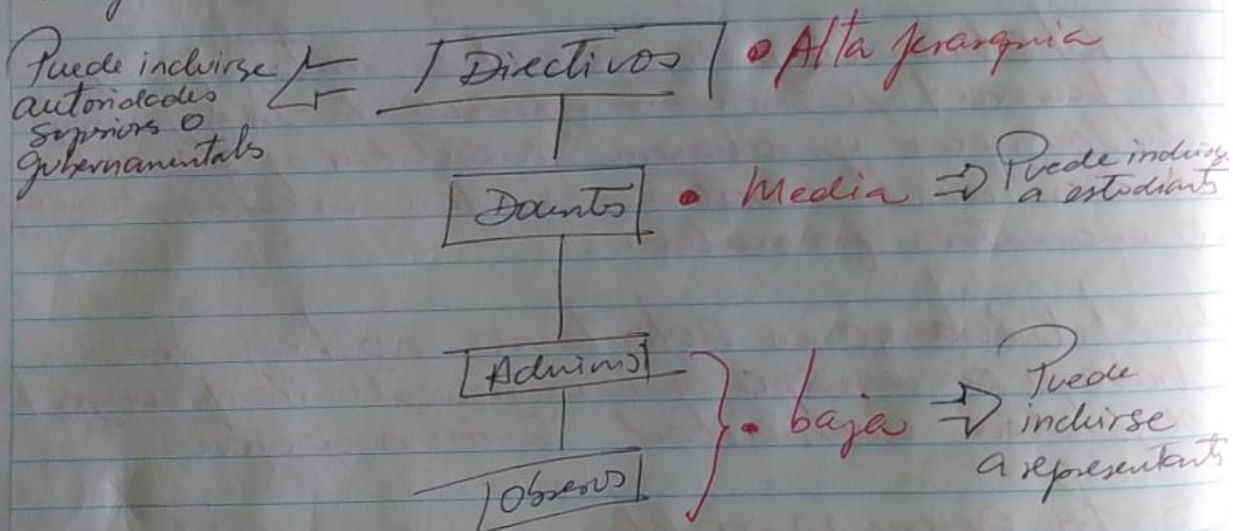 Puede incluirse
autoridades
superiors o
gubernamentals
Directivos
• Alta jerarquia
Docents
• Media ⇒ Puede incluirse
a estudiants
Admins
Obreros
• baja ⇒ Puede
incluirse
a representants